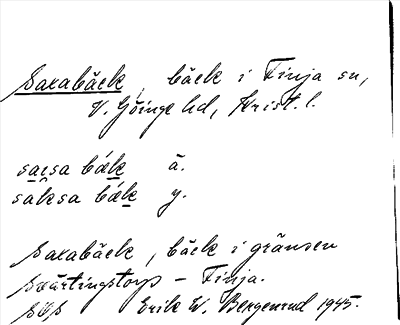 Saxabäck, bäck i Finja sn,
V. Göinge hd, Krist. l.
sacsa bäk ä.
saksa bäk y.
Saxabäck, bäck i gränsen
Svärtingstorp – Finja.
SOS Erik W. Bergenrud 1945.